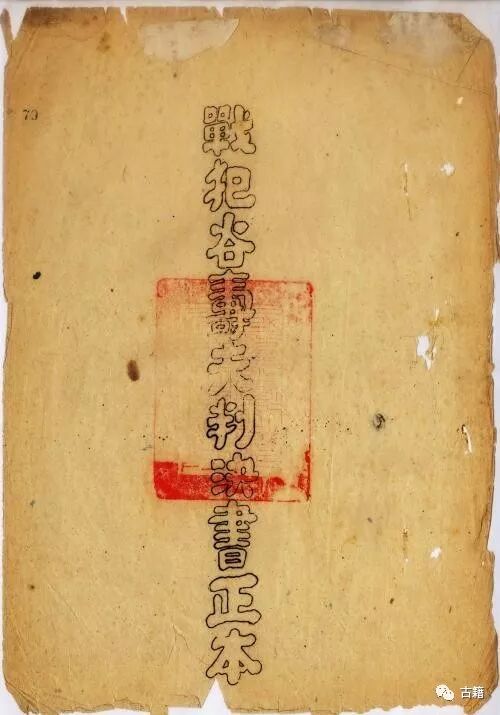 79
戰犯谷壽夫判決書正本
古籍